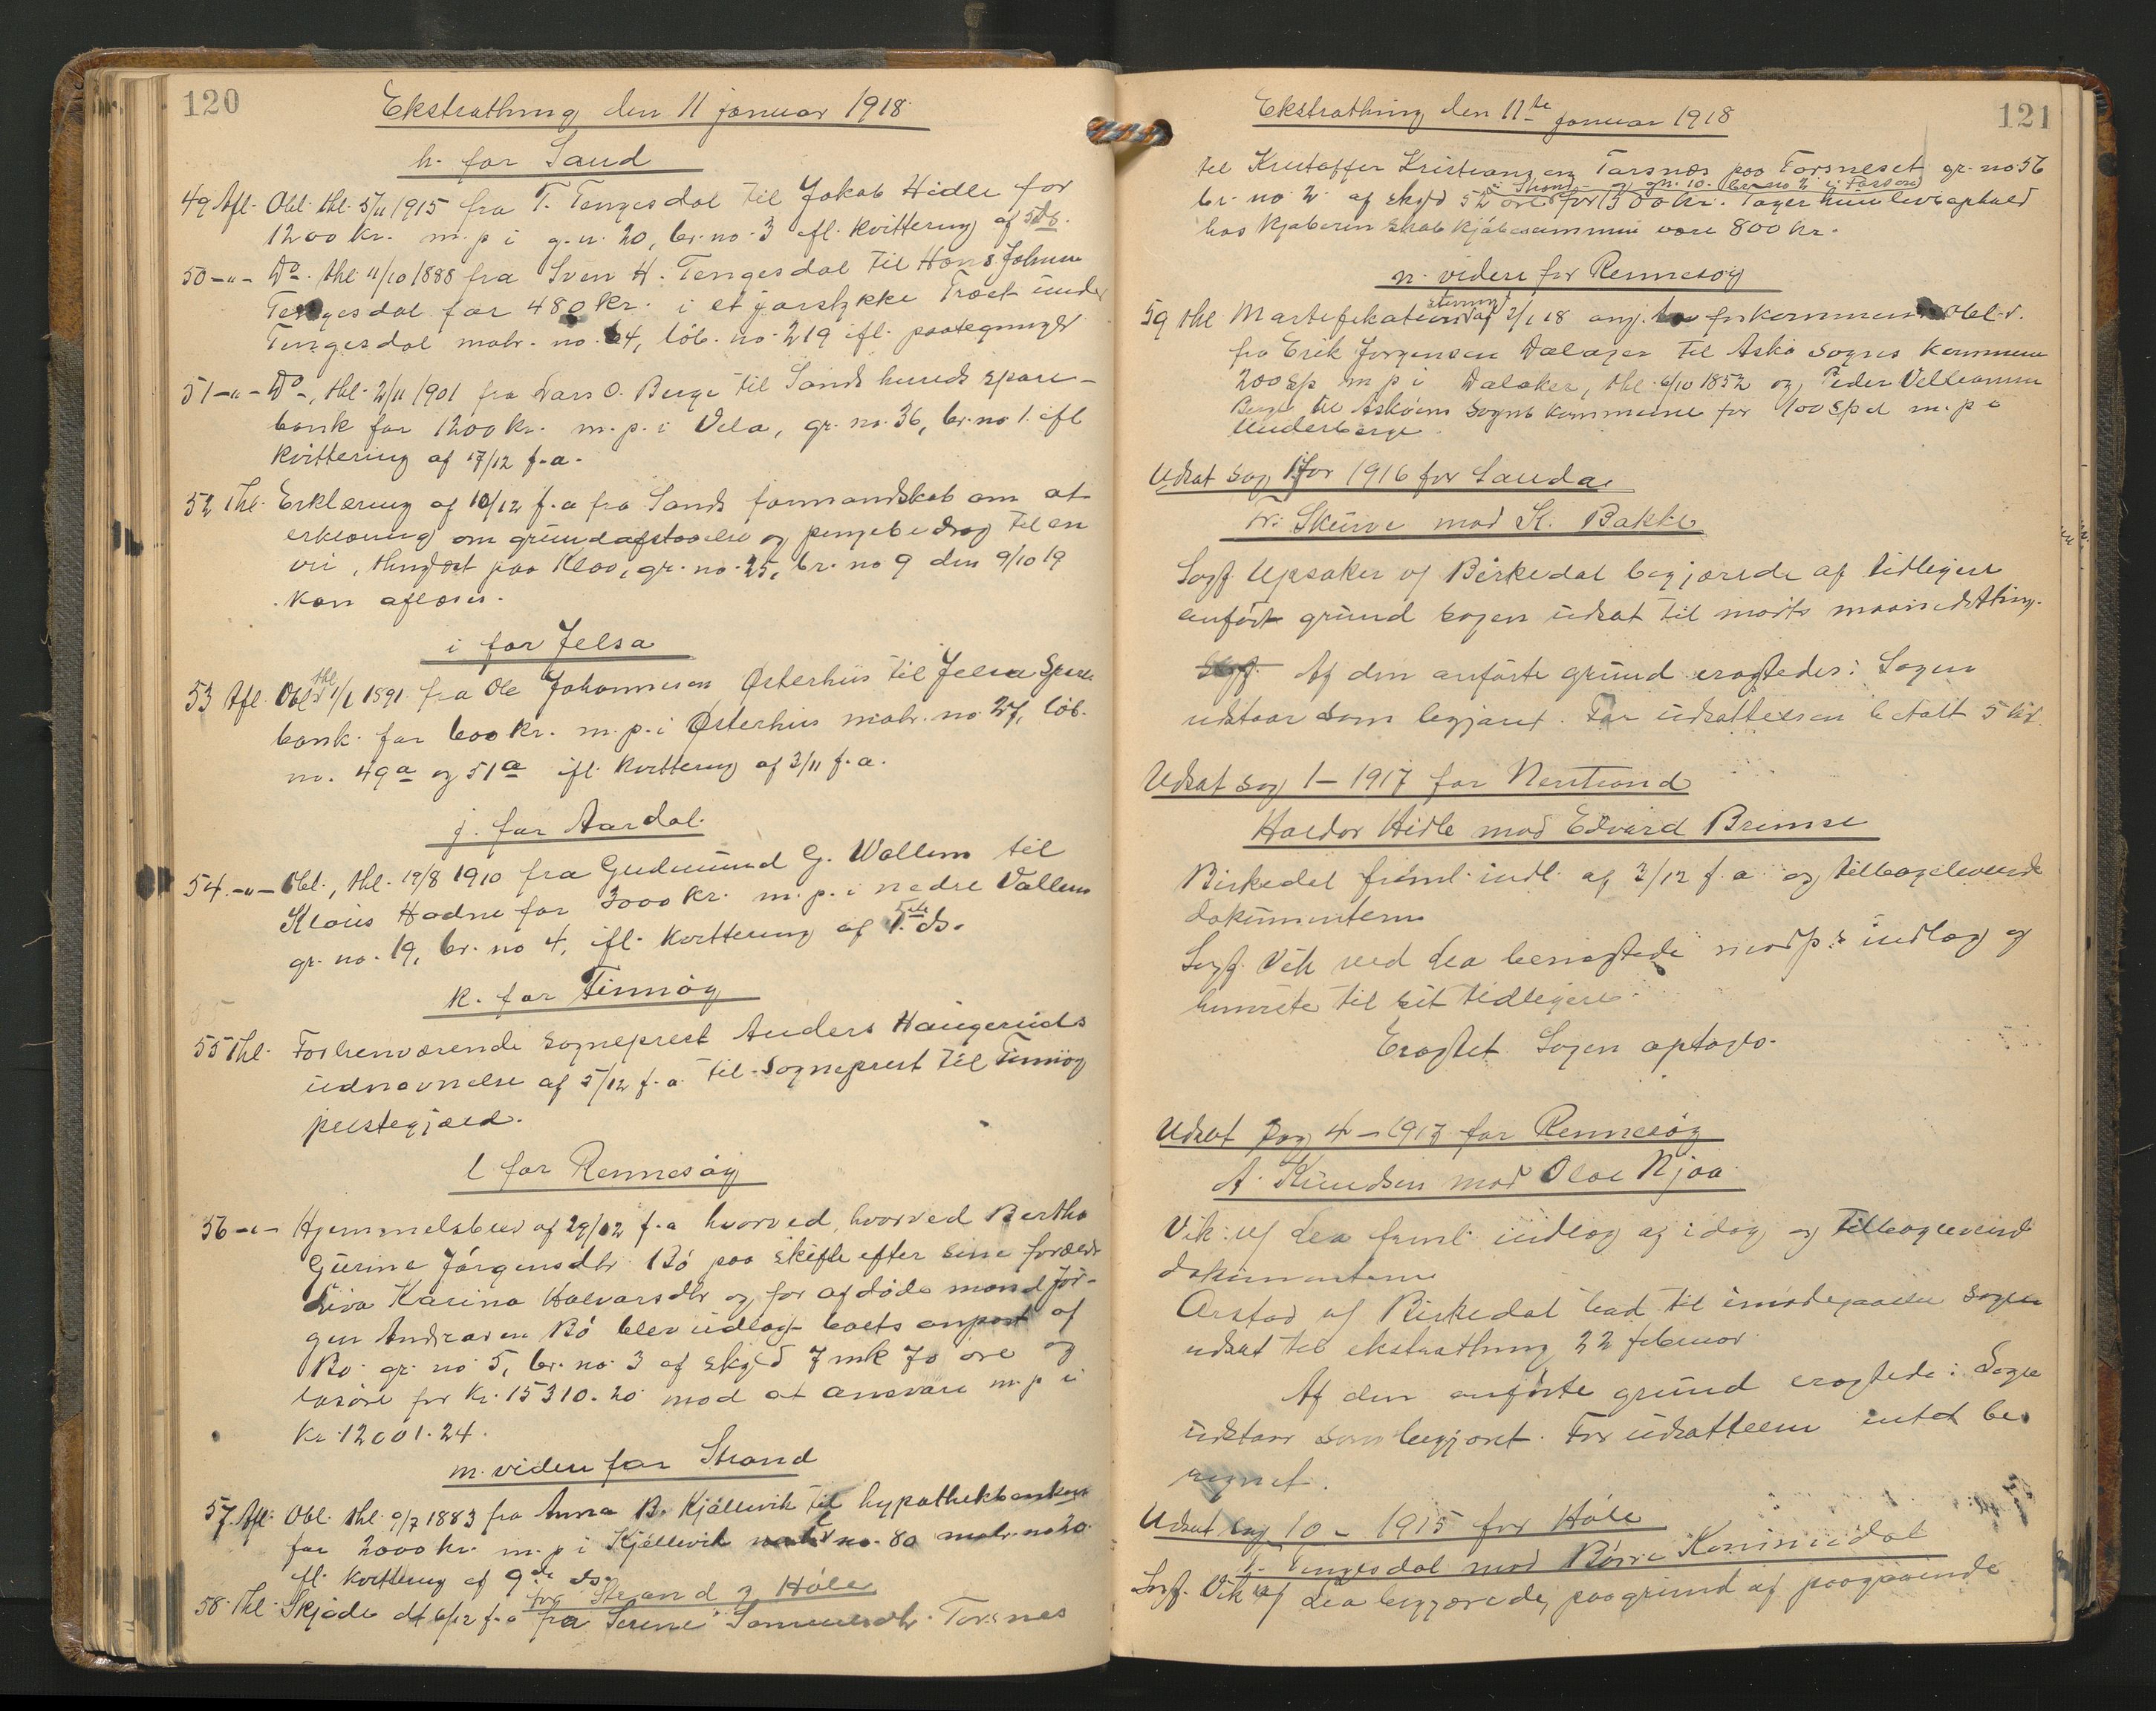 120
Ekstrathing den 11 januar 1918
h. for Sand
49 Afl. Obl. thl. 5/11 1915 fra T. Tengesdal til Jakob Hidle for
1200 kr. m. p i g. n. 20, br. no. 3 ifl. kvittering af 5 ds.
50 -"- Do. thl. 11/10 1888 fra Sven H. Tengesdal til Hans Johan
Tengesdal for 480 kr. i et jorstykke Træet under
Tengesdal matr. no. 64, löb. no. 219 ifl. paategninger
51 -"- Do, thl. 2/11 1901 fra Lars O. Berge til Sands hereds spare-
bank for 1200 kr. m. p. i Vela, gr. no. 36, br. no 1. ifl
kvittering af 17/12 f. a.
52 Thl. Erklæring af 10/12 f. a fra Sands formandskab om at
erklæring om grundafstaaelse og pengebedrag til en
vei, thinglæst paa Kleo, gr. no. 25, br. no 9 den 9/10 19
kan aflæses.
i for Jelsa
53 Afl. Obl. thl 1/6 1891 fra Ole Johannesen Østerhus til Jelsa Spare
bank for 600 kr. m. p. i Østerhus matr. no. 27, löb.
no. 49a og 51a ifl. kvittering af 3/11 f. a.
j. for Aardal.
54. -"- Obl., thl. 19/8 1910 fra Gudmund G. Vallem til
Klaus Hadne for 3000 kr. m. p. i nedre Vallem
gr. no. 19, br. no 4, ifl. kvittering af 5te ds.
k. for Finnöy
55 Thl. Forhenværende sogneprest Anders Haugeruds
udnævnelse af 5/12 f. a. til sogneprest til Finnöy
prestegjæld.
l for Rennesöy
56 -"- Hjemmelsbrev af 29/12 f. a hvorved, hvorved Bertha
Gurine Jörgensdtr Bö paa skifte efter sine forældr
Siva Karina Halvarsdtr og for afdöde mand Jör-
gen Andreasen Bö blev udlagt boets anpart af
Bö gr. no 5, br. no. 3 af skyld 7 mk 70 öre og
lösöre for Kr. 15310.20 mod at ansvare m. p i
Kr. 12001.24.
m. videre for Strand
57. Afl. Obl. thl. 9/7 1883 fra Anna B. Kjöllevik til hypothekbanken
for 2000 kr. m. p i Kjöllevik no. 80 matr. no 20.
ifl. kvittering af 9de ds.
for Strand og Höle
58. Thl. Skjöde af 6/12 f. a fra Serine Samuelsdtr. Torsnes
121
Ekstrathing den 11te januar 1918
til Kristoffer Kristiansen Tarsnes paa Torsneset gr. no 56
i Strand og gr. 10. br. no 2 i Fossan
br. no 2 af skyld 52 öre for 1300 kr. Tager hun livsophold
hos kjöberen skal kjöbesummen være 800 kr.
n. videre for Rennesöy
59 thl Martefikationsstevning af 2/1 18 ang. forkommen Obl.r.
fra Erik Jorgensen Dalager til Askö sogns kommune
200 Sp m p i Dalaker, thl. 6/10 1852 og Peder Velleamm
Berge til Asköens sogns kommune for 100 Spd m. p i
Underberge
Udsat sag 1 for 1916 for Sauda.
Tr. Skeirve mod K. Bakke
Sagf. Upsaker v/ Birkedal begjærede af tidligere
anfört grund sagen udsat til marts maanedsthing.
Af den anförte grund eragtedes: Sagen
udstaar som begjæret. For udsættelsen betalt 5 kr.
Udsat sag 1 - 1917 for Nerstrand
Haldor Hidle mod Edvard Brimse
Birkedal freml. indl. af 3/12 f. a og tilbageleverede
dokumenterne
Sagf. Vik ved Lea benegtede modp.s indlæg og
henviste til sit tidligere.
Eragtet. Sagen optages.
Udsat Sag 4 - 1917 for Rennesöy
A. Knudsen mod Olai Njaa
Vik v/ Lea freml. indlæg af idag og tilbageleverede
dokumenterne
Arstad v/ Birkedal bad til imødegaaelse sagen
udsat til ekstrathing 22 februar.
Af den anförte grund eragtede: Sagen
udstaar som begjæret. For udsættelsen intet be
regnet.
Udsat sag 10 - 1915 for Höle
T. Tengesdal mod Börre Kommedal
Sagf. Vik v/ Lea begjærede, paa grund af paagaaende